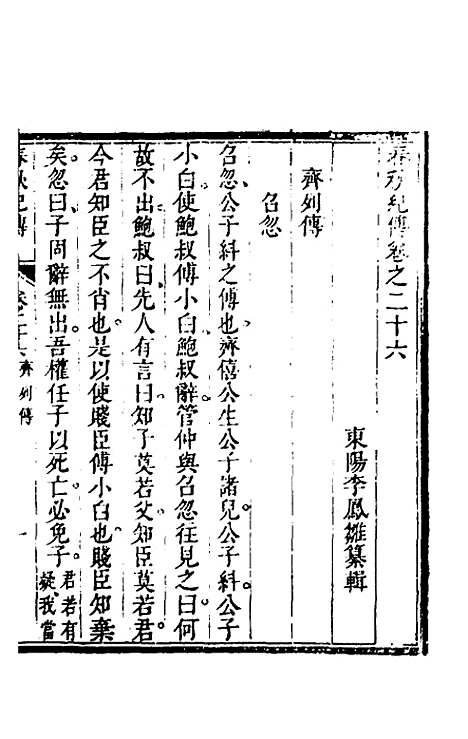 春秋紀傳卷之二十六
東陽李鳳雛纂輯
齊列傳
召忽
召忽公子糾之傅也齊僖公生公子諸兒公子糾公子
小白使鮑叔傅小白鮑叔辭管仲與召忽往見之曰何
故不出鮑叔曰先人有言曰知子莫若父知臣莫若君
今君知臣之不肖也是以使賤臣傅小白也賤臣知棄
矣忽曰子固辭無出吾權任子以死亡必免子君若有
疑我當
春秋紀傳
卷之二十六
齊列傳
一